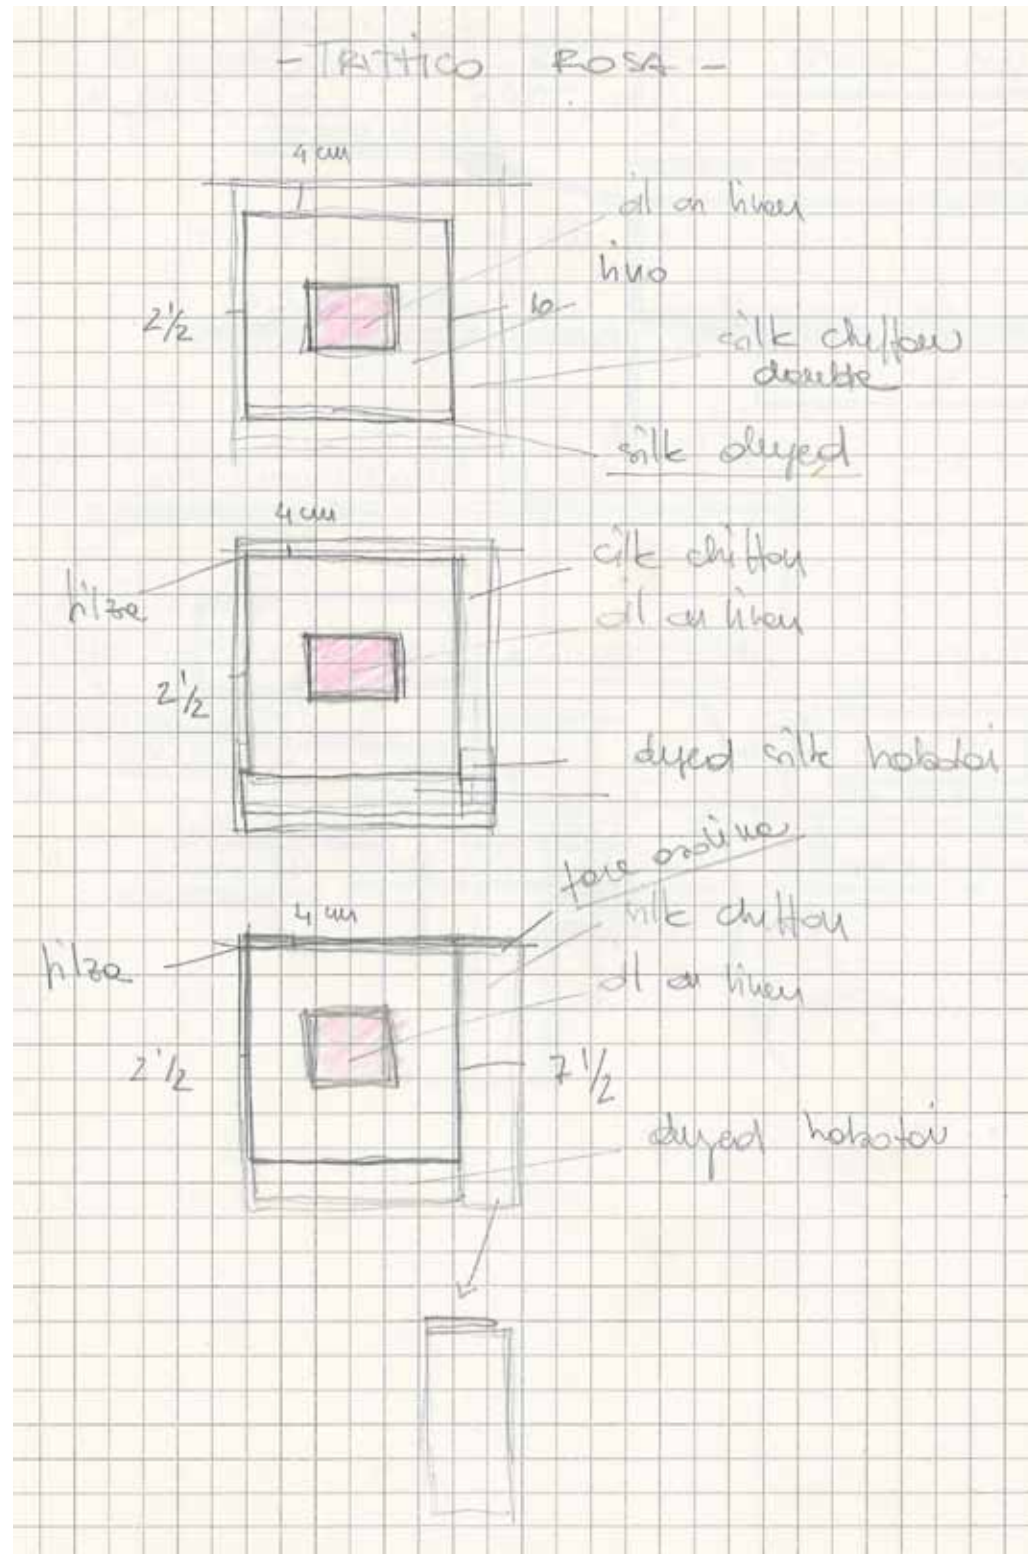 - TRITTICO ROSA -
4 cm
oil on linen
lino
2 1/2
10
silk chiffon
double
silk dyed
4 cm
silk chiffon
filza
oil on linen
2 1/2
dyed silk habotai
fare asolina
4 cm
silk chiffon
filza
oil on linen
2 1/2
7 1/2
dyed habotai